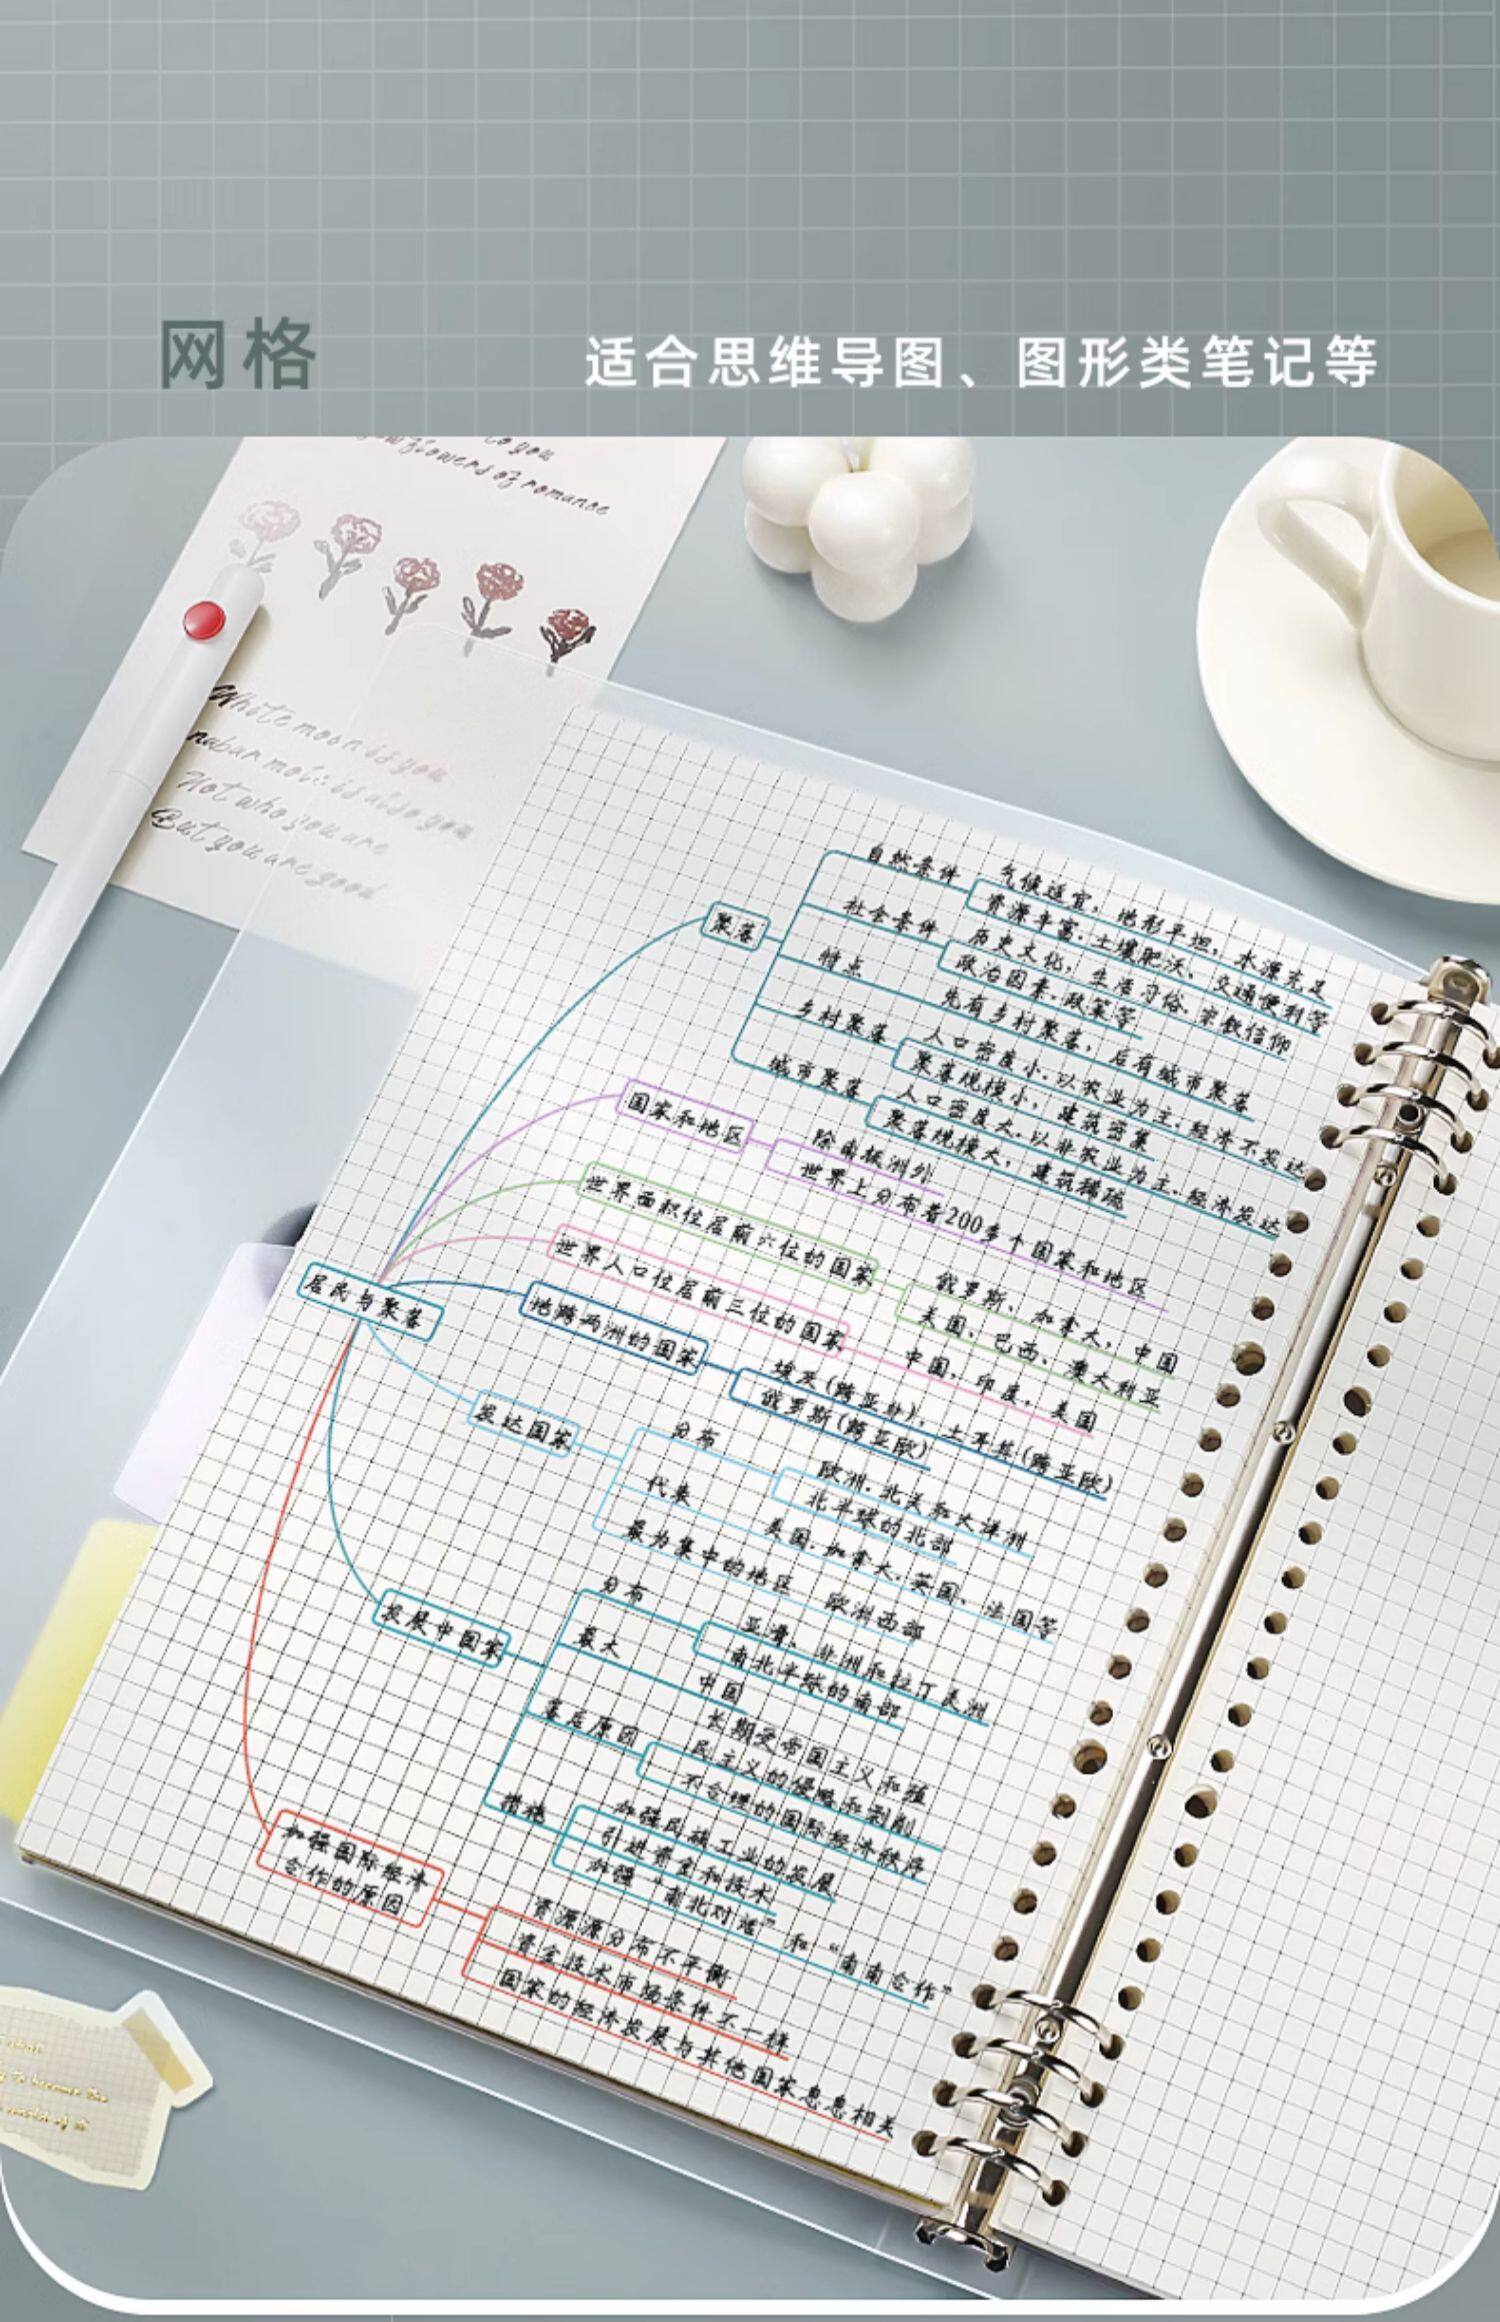 网格
适合思维导图、图形类笔记等
to you
flowers of romance
White moon is you
is also you
Not who you are
But you are good
居民与聚落
聚落
自然条件
气候适宜，地形平坦，水源充足
资源丰富，土壤肥沃、交通便利等
社会条件
历史文化，生活习俗、宗教信仰
政治因素、政策等
特点
先有乡村聚落，后有城市聚落
乡村聚落
人口密度小、以农业为主、经济不发达
聚落规模小，建筑密集
城市聚落
人口密度大、以非农业为主、经济发达
聚落规模大，建筑稀疏
国家和地区
除南极洲外
世界上分布着200多个国家和地区
世界面积位居前六位的国家
俄罗斯、加拿大，中国
美国、巴西、澳大利亚
世界人口位居前三位的国家
中国，印度，美国
地跨两洲的国家
埃及(跨亚非)，土耳其(跨亚欧)
俄罗斯(跨亚欧)
发达国家
分布
欧洲、北美和大洋洲
北半球的北部
代表
美国、加拿大、英国、法国等
最为集中的地区 欧洲西部
发展中国家
分布
亚洲、非洲和拉丁美洲
南北半球的南部
最大
中国
落后原因
长期受帝国主义和殖
民主义的侵略和剥削
不合理的国际经济秩序
措施
加强民族工业的发展
引进资金和技术
加强“南北对话”和“南南合作”
加强国际经济
合作的原因
资源源分布不平衡
资金技术市场条件不一样
国家的经济发展与其他国家息息相关